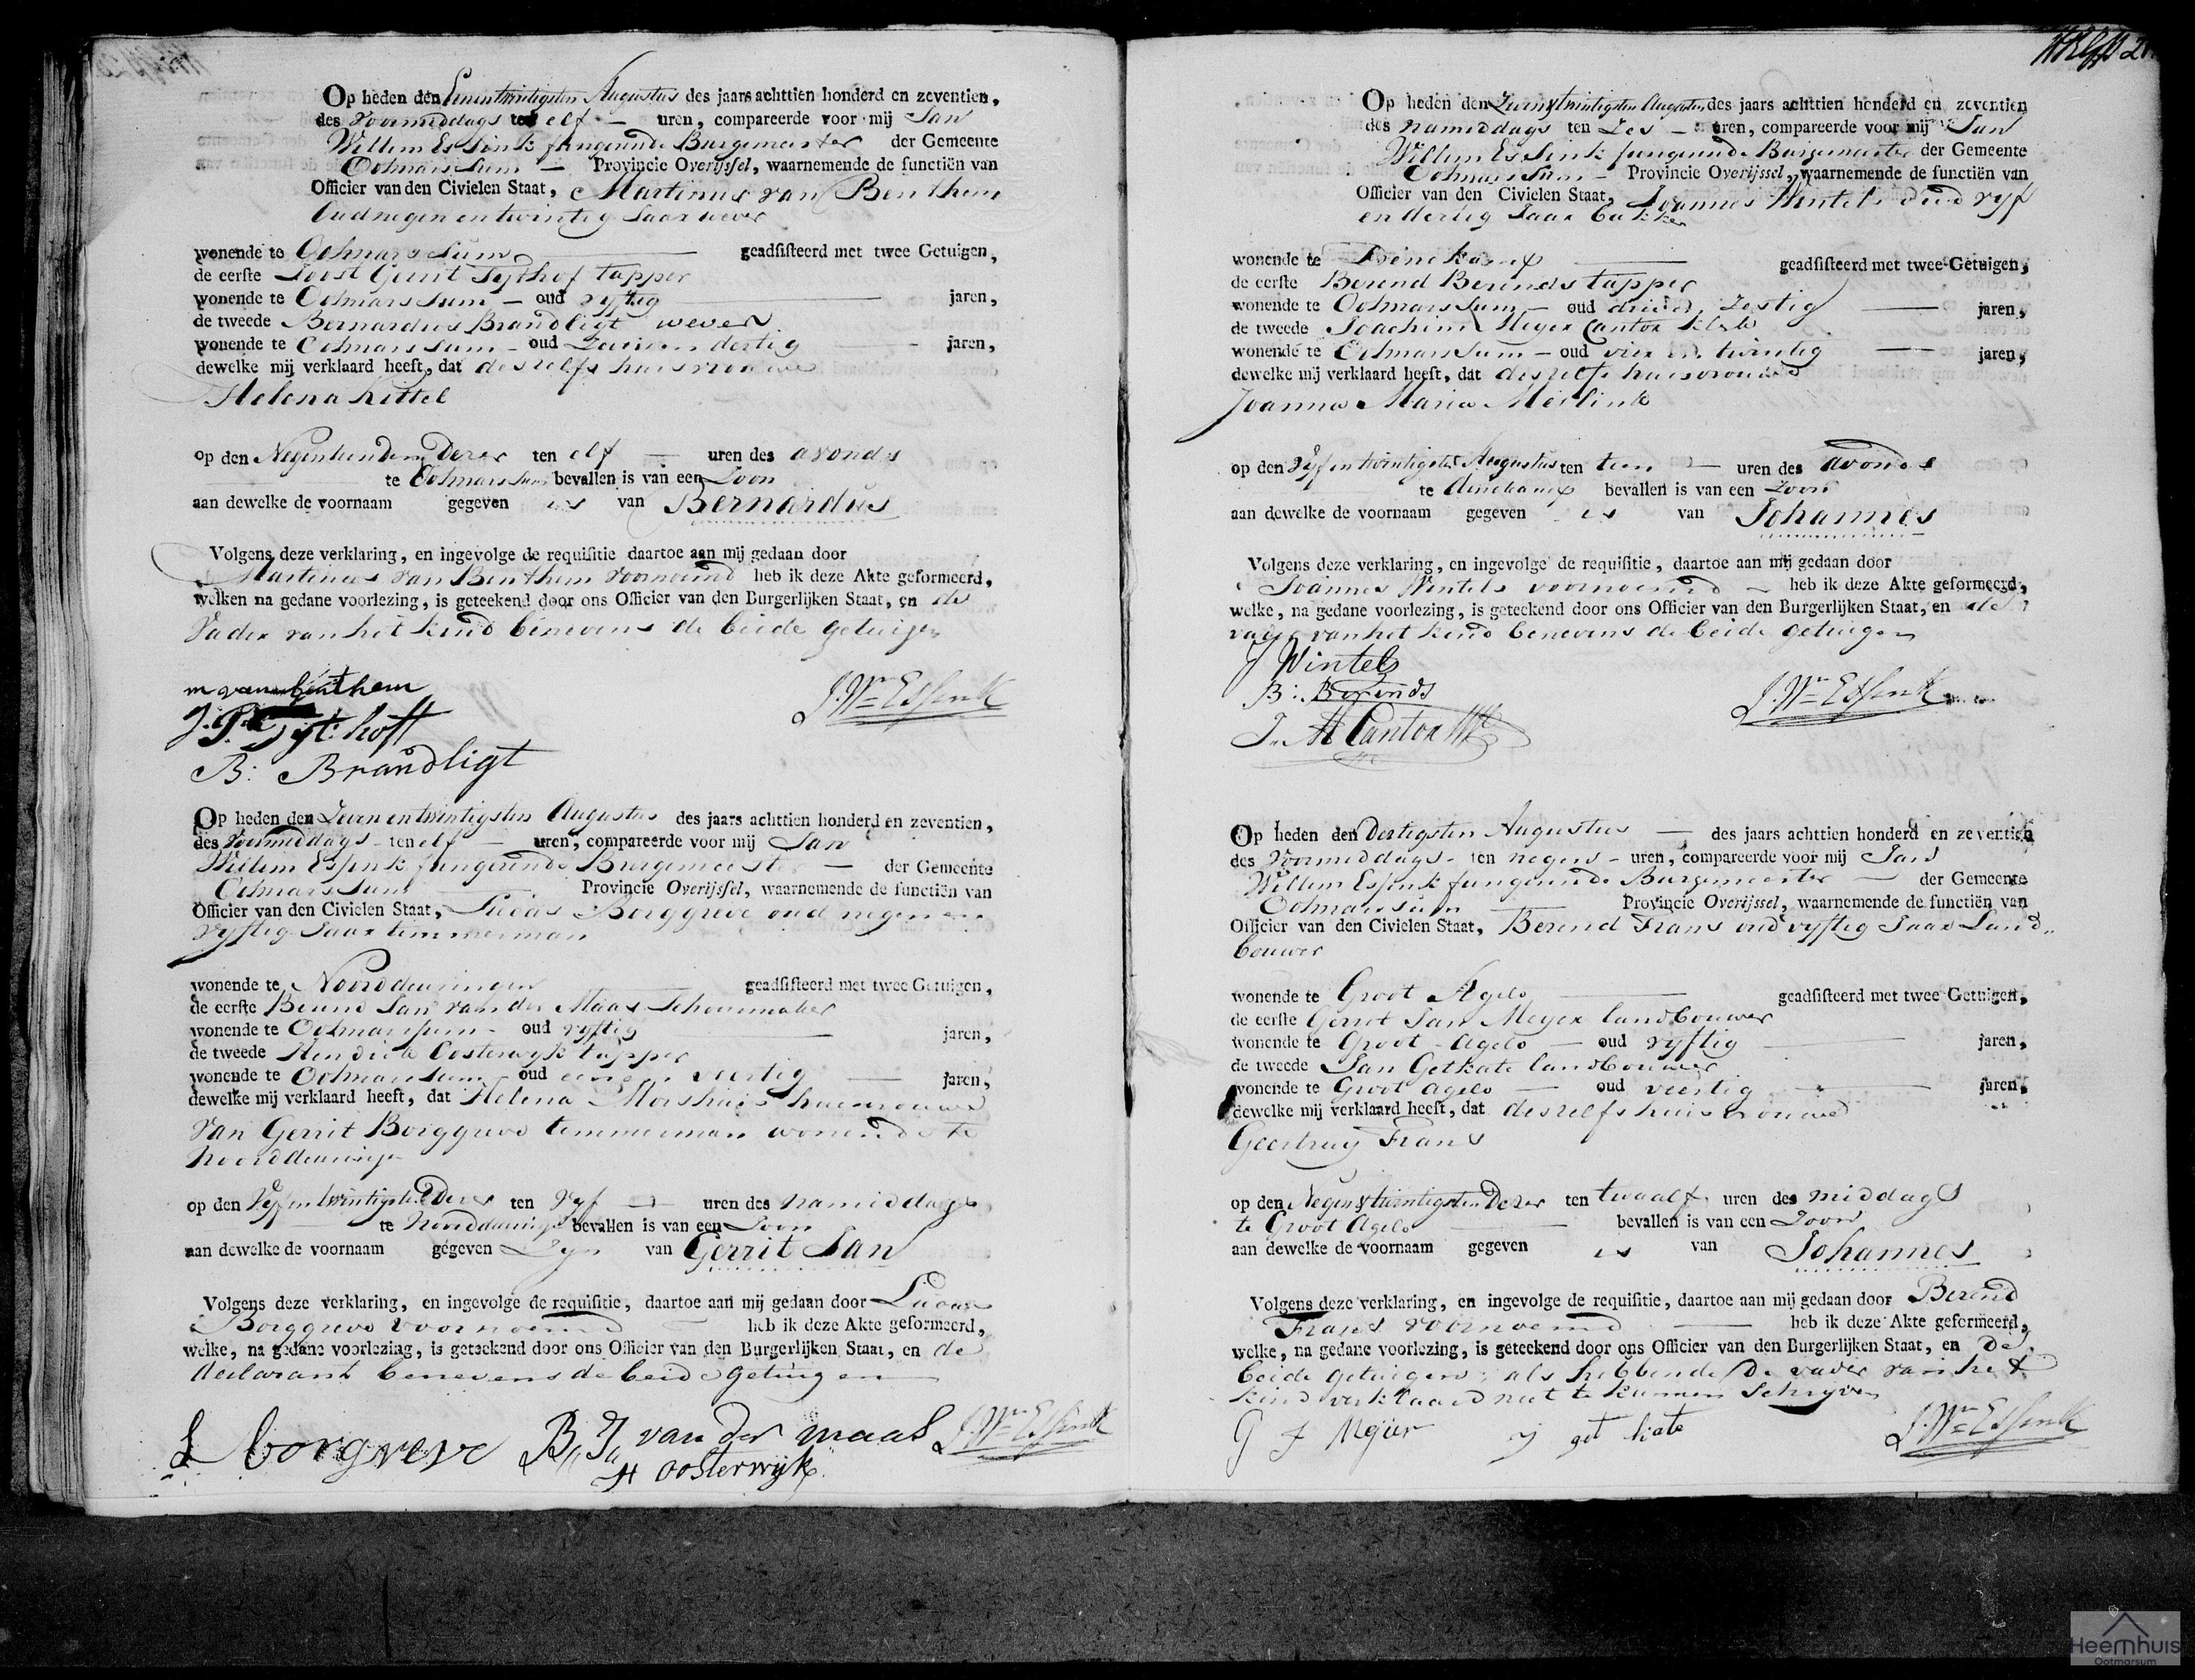 Op heden den Eenentwintigsten Augustus des jaars achttien honderd en zeventien,
des voormiddags ten elf — uren, compareerde voor mij Jan
Willem Essink fungeerende Burgemeester der Gemeente
Ootmarssum — Provincie Overijssel, waarnemende de functiën van
Officier van den Civielen Staat, Martinus van Benthem
Oud negen en twintig Jaar wever
wonende te Ootmarssum geadsisteerd met twee Getuigen,
de eerste Joost Gerrit Tythof tapper
wonende te Ootmarssum — oud vyftig jaren,
de tweede Bernardus Brandligt wever
wonende te Ootmarssum — oud dertig — jaren,
dewelke mij verklaard heeft, dat deszelfs huisvrouwe
Helena Kittel
op den Negentienden Dezer ten elf — uren des avonds
te Ootmarssum bevallen is van een Zoon
aan dewelke de voornaam gegeven is van Bernardus
Volgens deze verklaring, en ingevolge de requisitie daartoe aan mij gedaan door
Martinus van Benthem voornoemd heb ik deze Akte geformeerd,
welken na gedane voorlezing, is geteekend door ons Officier van den Burgerlijken Staat, en de
Vader van het kind benevens de beide getuigen
m van benthem
J. Wm Essink
Tyt hoff
B: Brandligt
Op heden den Zeven en twintigsten Augustus des jaars achttien honderd en zeventien,
des Voormiddags ten elf — uren, compareerde voor mij Jan
Willem Essink fungeerende Burgemeester — der Gemeente
Ootmarssum Provincie Overijssel, waarnemende de functiën van
Officier van den Civielen Staat, Lucas Borggreve oud negen en
vyftig Jaar timmerman
wonende te Noorddeuningen geadsisteerd met twee Getuigen,
de eerste Berend Jan van der Maas Schoenmaker
wonende te Ootmarssum — oud vyftig jaren,
de tweede Hendrik Oosterwyk tapper
wonende te Ootmarssum — oud een en veertig — jaren,
dewelke mij verklaard heeft, dat Helena Morshuis huisvrouwe
van Gerrit Borggreve timmerman wonende te
Noorddeuningen
op den Vyfentwintigsten Dezer ten Vyf — uren des namiddags
te Noorddeuningen bevallen is van een Zoon
aan dewelke de voornaam gegeven Zyn van Gerrit Jan
Volgens deze verklaring, en ingevolge de requisitie, daartoe aan mij gedaan door Lucas
Borggreve voornoemd heb ik deze Akte geformeerd,
welke, na gedane voorlezing, is geteekend door ons Officier van den Burgerlijken Staat, en de
declarant benevens de beide getuigen
L borgreve B J van der maas J. Wm Essink
H oosterwijk
Op heden den Zevenentwintigsten Augustus des jaars achttien honderd en zeventien
des namiddags ten Zes — uren, compareerde voor mij Jan
Willem Essink fungeerende Burgemeester der Gemeente
Ootmarssum — Provincie Overijssel, waarnemende de functiën van
Officier van den Civielen Staat, Joannes Wintels oud vyf
en dertig Jaar bakker
wonende te Denekamp geadsisteerd met twee Getuigen,
de eerste Berend Berends tapper
wonende te Ootmarssum — oud drie en zestig — jaren,
de tweede Joachim Meyer Cantor
wonende te Ootmarssum — oud vier en twintig — jaren,
dewelke mij verklaard heeft, dat deszelfs huisvrouwe
Joanna Maria
op den Vyfentwintigsten Augustus ten tien — uren des avonds
te denekamp bevallen is van een Zoon
aan dewelke de voornaam gegeven is van Johannes
Volgens deze verklaring, en ingevolge de requisitie, daartoe aan mij gedaan door
Joannes Wintels voornoemd — heb ik deze Akte geformeerd,
welke, na gedane voorlezing, is geteekend door ons Officier van den Burgerlijken Staat, en de
vader van het kind benevens de beide getuigen
J Wintels
B: Berends
J. Wm Essink
J. M Cantor
Op heden den dertigsten Augustus — des jaars achttien honderd en zeventien
des voormiddags ten negen — uren, compareerde voor mij Jan
Willem Essink fungeerende Burgemeester — der Gemeente
Ootmarssum Provincie Overijssel, waarnemende de functiën van
Officier van den Civielen Staat, Berend Frans oud vyftig Jaar Land
bouwer
wonende te Groot Agelo geadsisteerd met twee Getuigen,
de eerste Gerrit Jan Meyer landbouwer
wonende te Groot Agelo — oud vyftig jaren,
de tweede Jan Getkate landbouwer
wonende te Groot Agelo — oud veertig jaren,
dewelke mij verklaard heeft, dat deszelfs huisvrouwe
Geertruy Frans
op den Negenentwintigsten Dezer ten twaalf uren des middags
te Groot Agelo bevallen is van een Zoon
aan dewelke de voornaam gegeven is van Johannes
Volgens deze verklaring, en ingevolge de requisitie, daartoe aan mij gedaan door Berend
Frans voornoemd — heb ik deze Akte geformeerd,
welke, na gedane voorlezing, is geteekend door ons Officier van den Burgerlijken Staat, en De
beide getuigen, als hebbende De vader van het
kind verklaard niet te kunnen Schryven
G J Meijer J get kate J. Wm Essink
Heemhuis
Ootmarsum